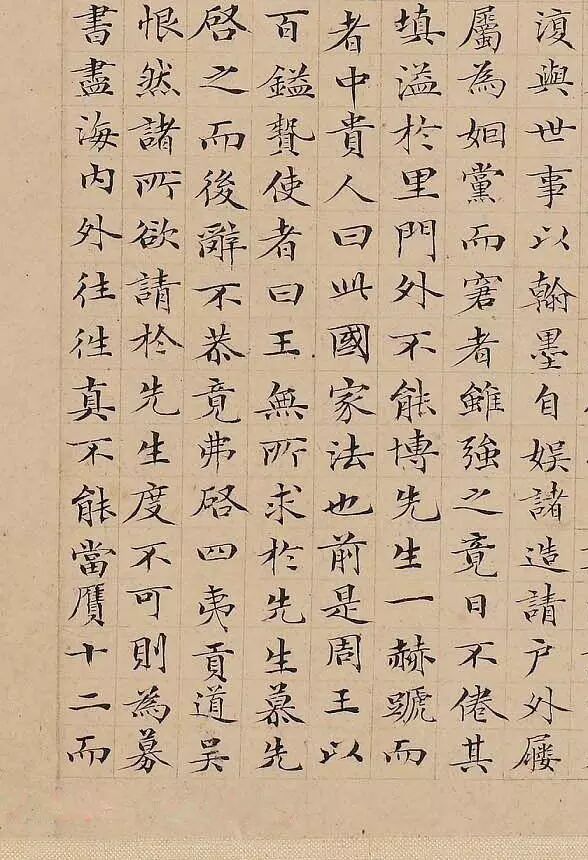 復與世事以翰墨自娛諸造請户外屨
屬為姻黨而窘者雖強之竟日不倦其
填溢於里門外不能博先生一赫蹏而
者中貴人曰此國家法也前是周王以
百鎰贄使者曰王無所求於先生慕先
啓之而後辭不恭竟弗啓四夷貢道吴
恨然諸所欲請於先生度不可則為募
書盡海内外往往真不能當贋十二而